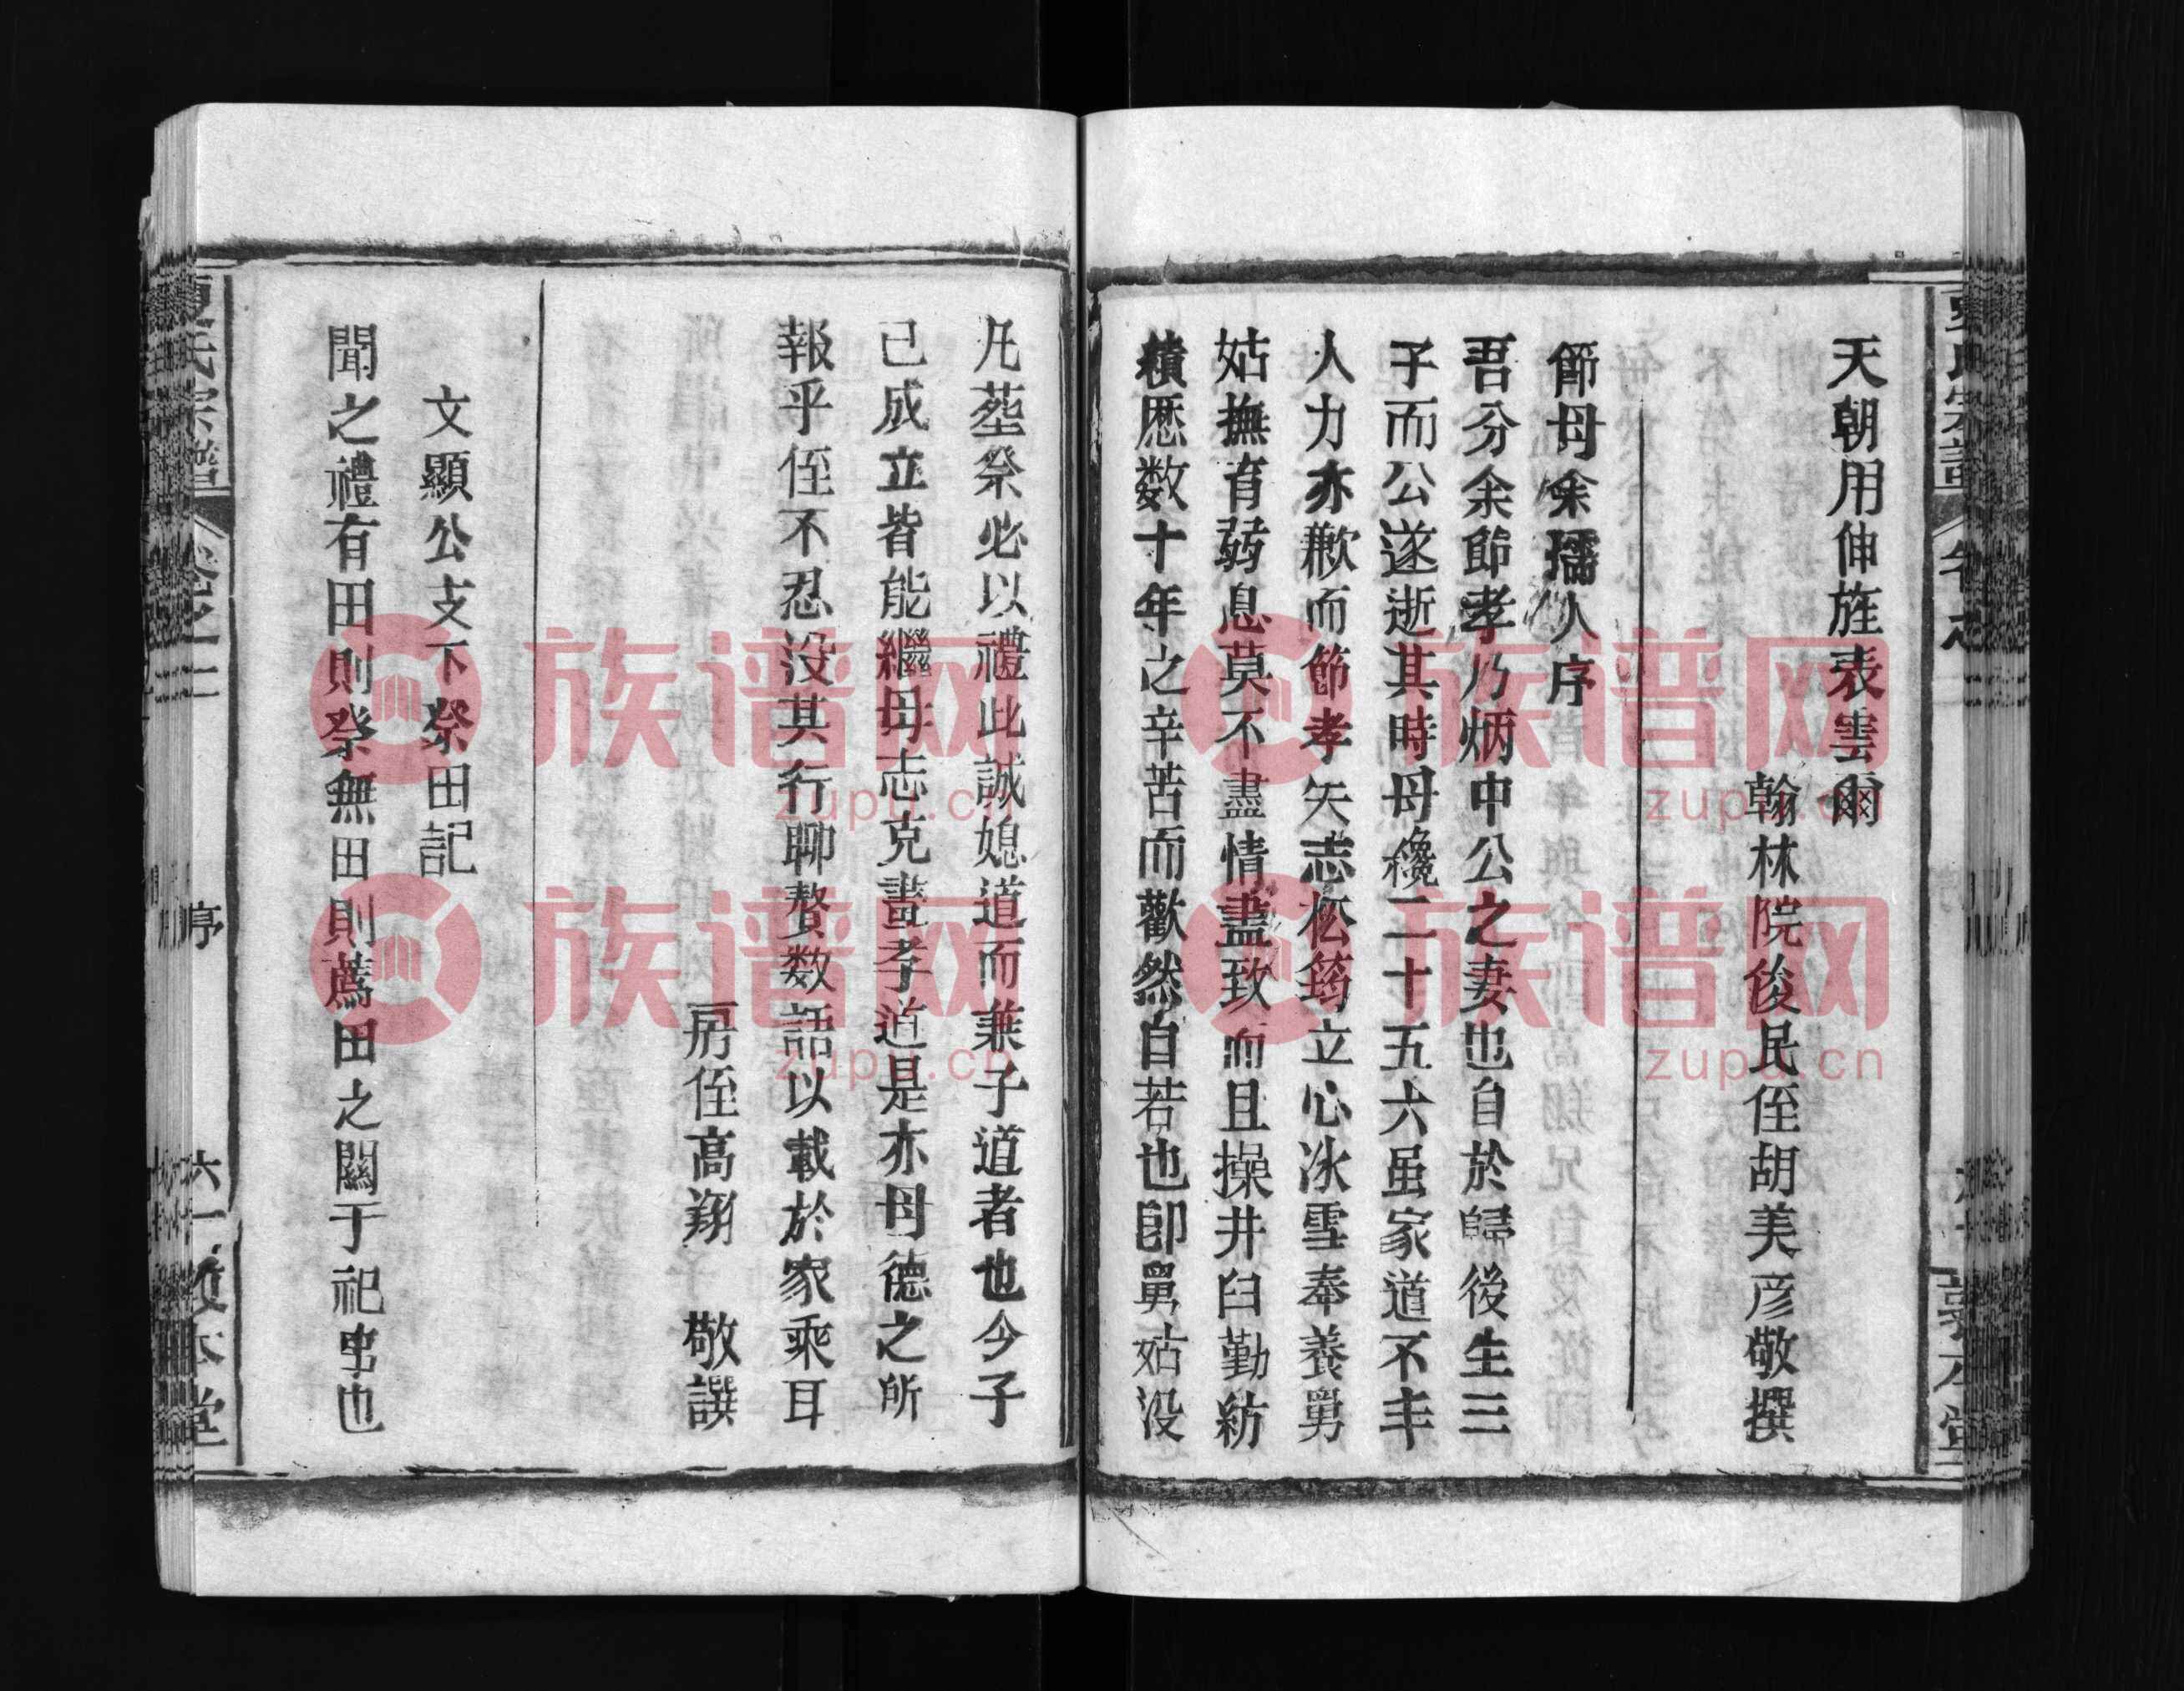 天朝用伸旌表雲爾
翰林院俊民侄胡美彦敬撰
節母余孺人序
吾分余節孝乃炳中公之妻也自於歸後生三
子而公遂逝其時母纔二十五六虽家道不丰
人力亦歉而節孝矢志松筠立心冰雪奉養舅
姑撫育弱息莫不盡情盡致而且操井臼勤紡
績歷数十年之辛苦而歡然自若也卽舅姑没
凢塟祭必以禮此誠媳道而兼子道者也今子
已成立皆能繼母志克盡孝道是亦母德之所
報乎侄不忍没其行聊贅数語以載於家乘耳
房侄高翔 敬譔
文顯公支下祭田記
聞之禮有田則祭無田則薦田之關于祀事也
夏氏宗譜
卷之二
序
六一
敦本堂
族谱网
zupu.cn
族谱网
zupu.cn
族谱网
zupu.cn
族谱网
zupu.cn